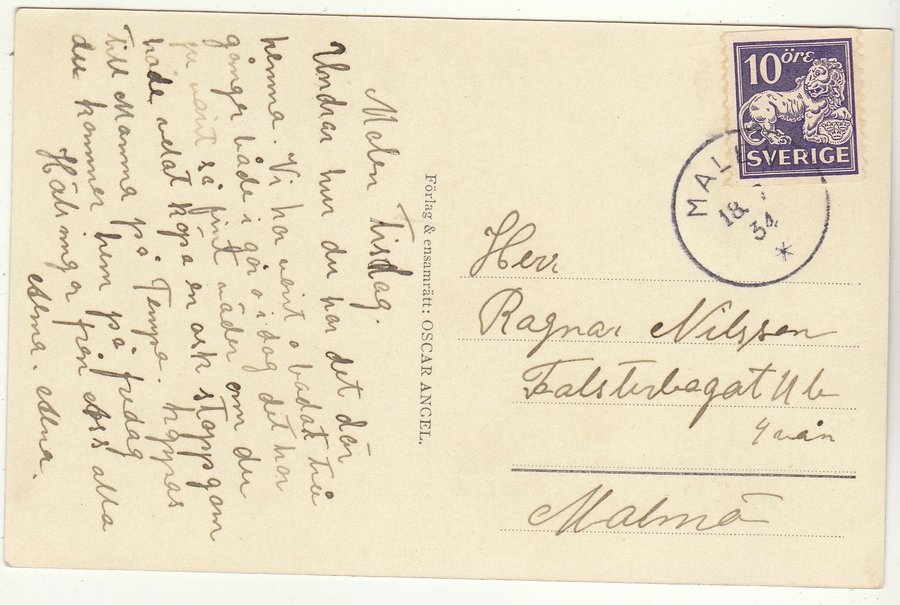 Malen Tisdag.
Undrar hur du har det där
hemma. Vi har varit o badat tre
gånger både i går o i dag det har
ju varit så fint väder om du
hade velat köpa en ask stoppgarn
till Mamma på Tempo. hoppas
du kommer hem på fredag
Hälsningar från oss alla
Alma. Elna.
Förlag & ensamrätt: OSCAR ANGEL.
10 ÖRE
SVERIGE
MALEN
18. 7
34
Herr
Ragnar Nilsson
Falsterbogat 11 b
4 vån
Malmö